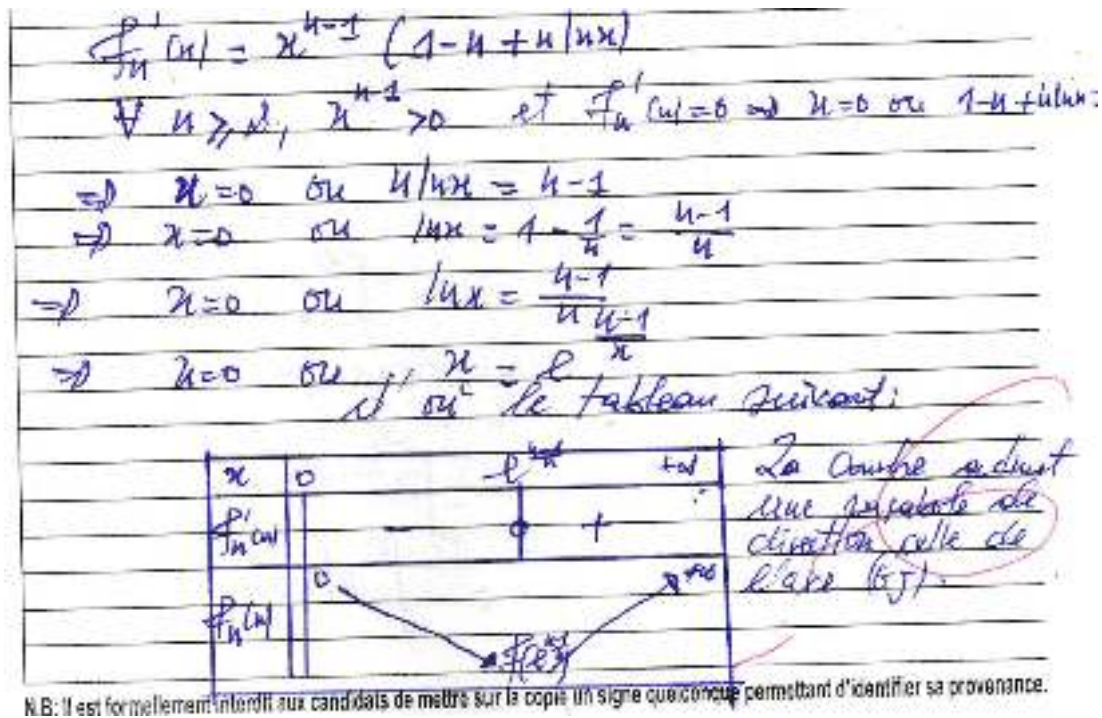 f'n(x) = x^{n-1} (1-n+n lnx)
∀ n ≥ 2, x^{n-1} > 0 et f'n(x)=0 => x=0 ou 1-n+nlnx=
=> x=0 ou n lnx = n-1
=> x=0 ou lnx = 1 - 1/n = n-1/n
=> x=0 ou lnx = n-1/n
=> x=0 ou x = e^{n-1/n}
d'où le tableau suivant:
x 0 e^{n-1/n} +∞
f'n(x) - 0 +
fn(x) 0 f(e^{n-1/n}) +∞
La Courbe admet
une parabole de
direction celle de
l'axe (OJ).
N.B: Il est formellement interdit aux candidats de mettre sur la copie un signe quelconque permettant d'identifier sa provenance.